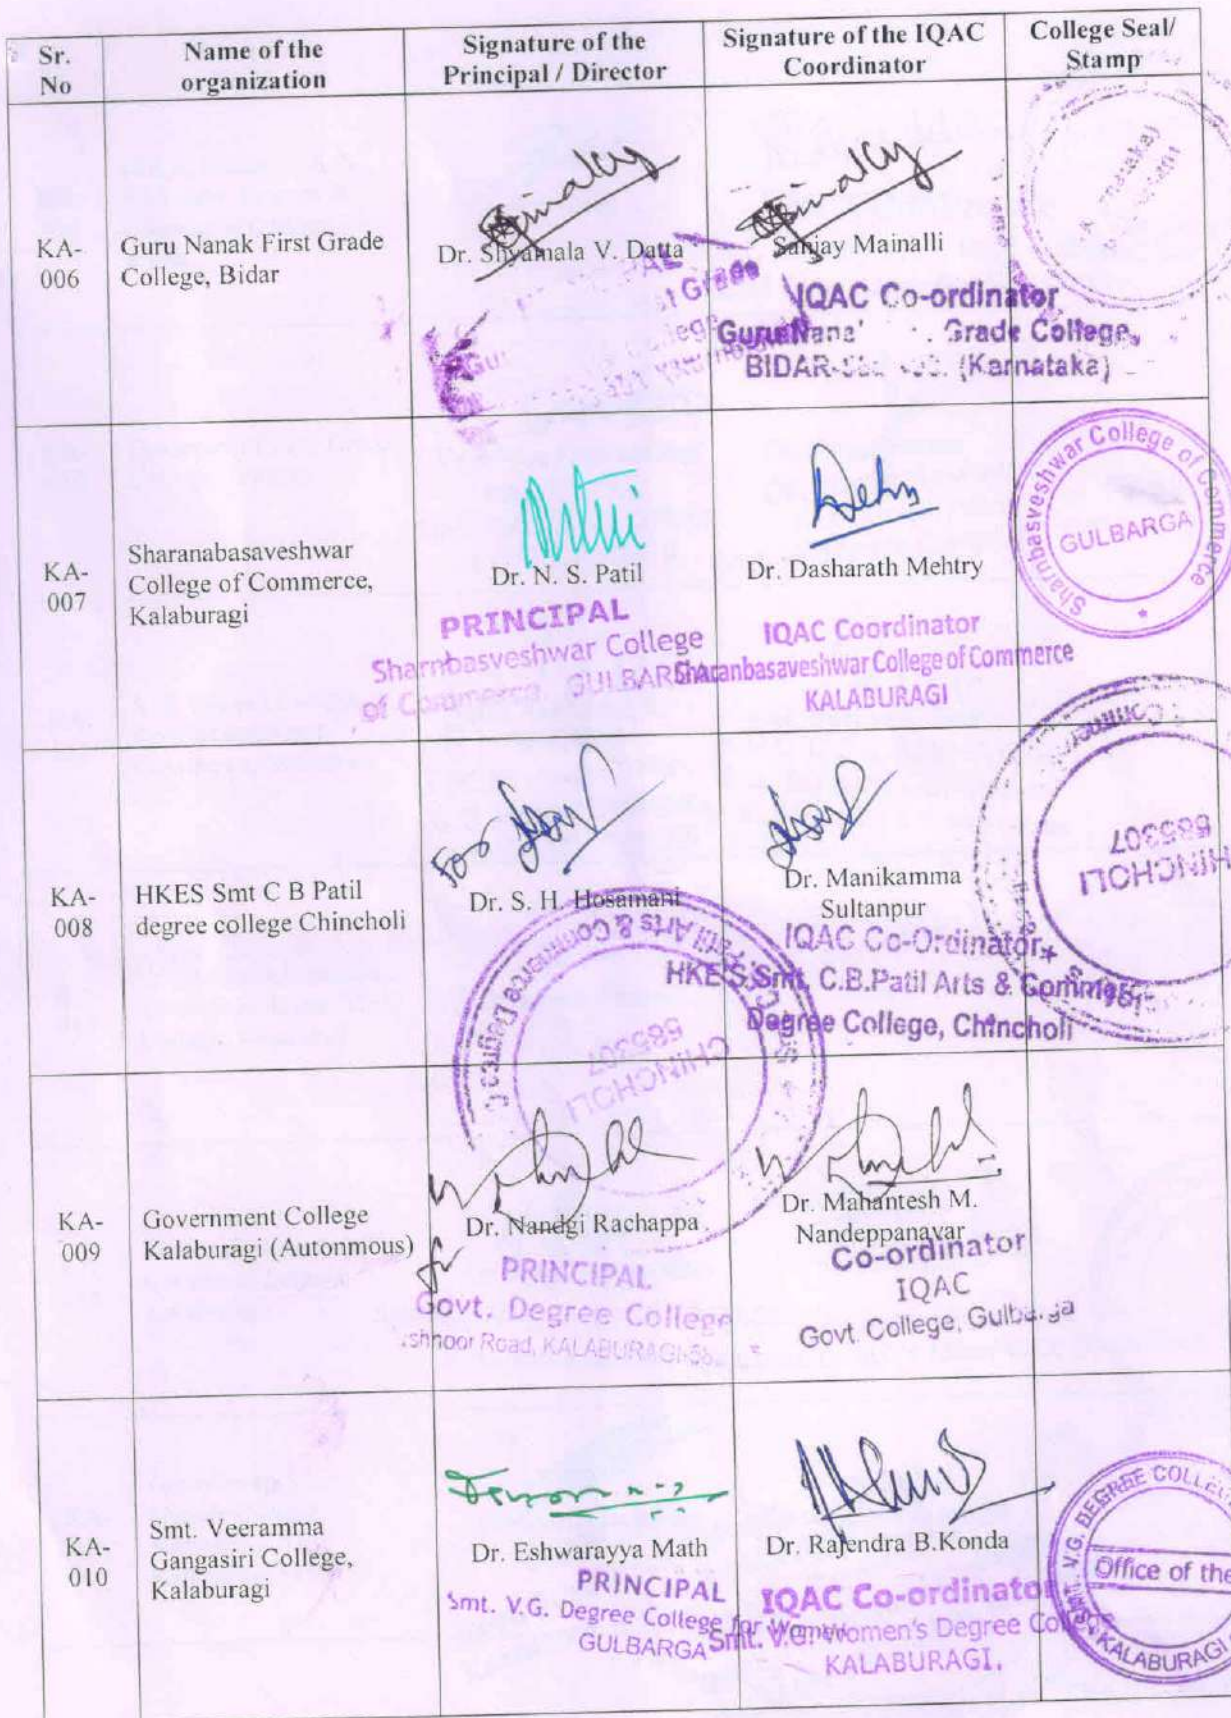 Sr.
No
Name of the
organization
Signature of the
Principal / Director
Signature of the IQAC
Coordinator
College Seal/
Stamp
KA-
006
Guru Nanak First Grade
College, Bidar
Dr. Shyamala V. Datta
st Grade
Sanjay Mainalli
IQAC Co-ordinator
Grade College,
BIDAR (Karnataka)
KA-
007
Sharanabasaveshwar
College of Commerce,
Kalaburagi
Dr. N. S. Patil
PRINCIPAL
Sharnbasveshwar College
of Commerce, GULBARGA
Dr. Dasharath Mehtry
IQAC Coordinator
Sharanbasaveshwar College of Commerce
KALABURAGI
Sharnbasveshwar College of Commerce
GULBARGA
KA-
008
HKES Smt C B Patil
degree college Chincholi
For
Dr. S. H. Hosamani
Patil Arts & Commerce Degree C
CHINCHOLI
585307
Dr. Manikamma
Sultanpur
IQAC Co-Ordinator
HKE'S Smt. C.B.Patil Arts & Commerce
Degree College, Chincholi
HINCHOLI
585307
KA-
009
Government College
Kalaburagi (Autonmous)
Dr. Nandgi Rachappa
for
PRINCIPAL
Govt. Degree College
Road, KALABURAGI
Dr. Mahantesh M.
Nandeppanavar
Co-ordinator
IQAC
Govt. College, Gulbarga
KA-
010
Smt. Veeramma
Gangasiri College,
Kalaburagi
Dr. Eshwarayya Math
PRINCIPAL
Smt. V.G. Degree College for Women
GULBARGA
Dr. Rajendra B.Konda
IQAC Co-ordinator
Smt. V.G. Women's Degree College
KALABURAGI.
Smt. V.G. DEGREE COLLEGE
Office of the
KALABURAGI